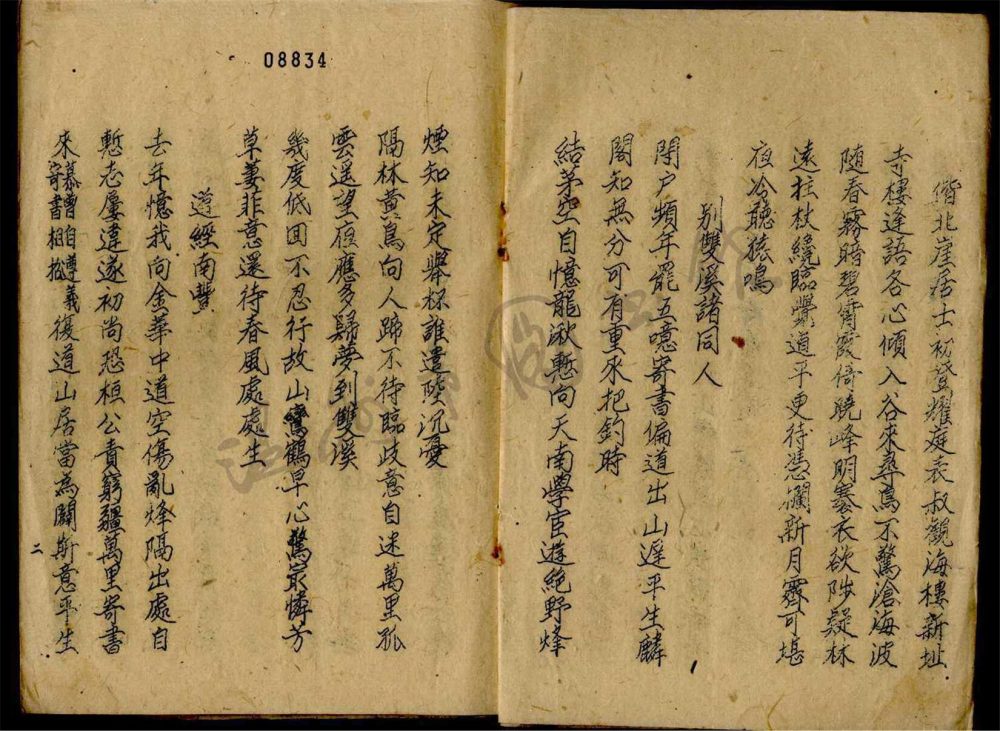 偕北崖居士初登耀庭表叔觀海樓新址
寺樓逢語各心傾入谷來尋鳥不驚滄海波
随春霧暗碧霄霞倚曉峰明褰衣欲陟疑林
遠拄杖纔臨覺道平更待憑欄新月霽可堪
夜冷聽猿鳴
别雙溪諸同人
閉户頻年罷五噫寄書偏道出山遲平生麟
閣知無分可有重來把釣時
結茅空自憶龍湫慙向天南學宦遊絶野烽
煙知未定舉杯誰遣墮沉憂
隔林黄鳥向人蹄不待臨歧意自迷萬里孤
雲遥望夜應多歸夢到雙溪
幾度低囬不忍行故山鸞鶴早心驚最憐芳
草萋菲意還待春風處處生
道經南豐
去年憶我向金華中道空傷亂烽隔出處自
慙志屢違遂初尚恐桓公責窮疆萬里寄書
來慕曹自噂義復道山居當為闢斯意平生
寄書相
二
08834